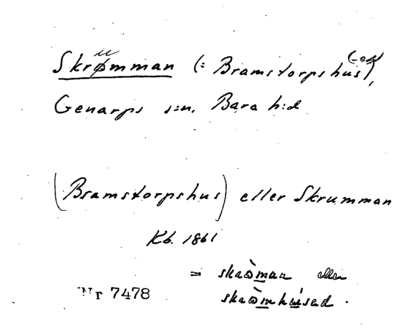 Skrømman (= Bramstorpshus(et)),
Genarps sn. Bara hd
(Bramstorpshus) eller Skrumman
Kb. 1861
= skròman eller
Nr 7478